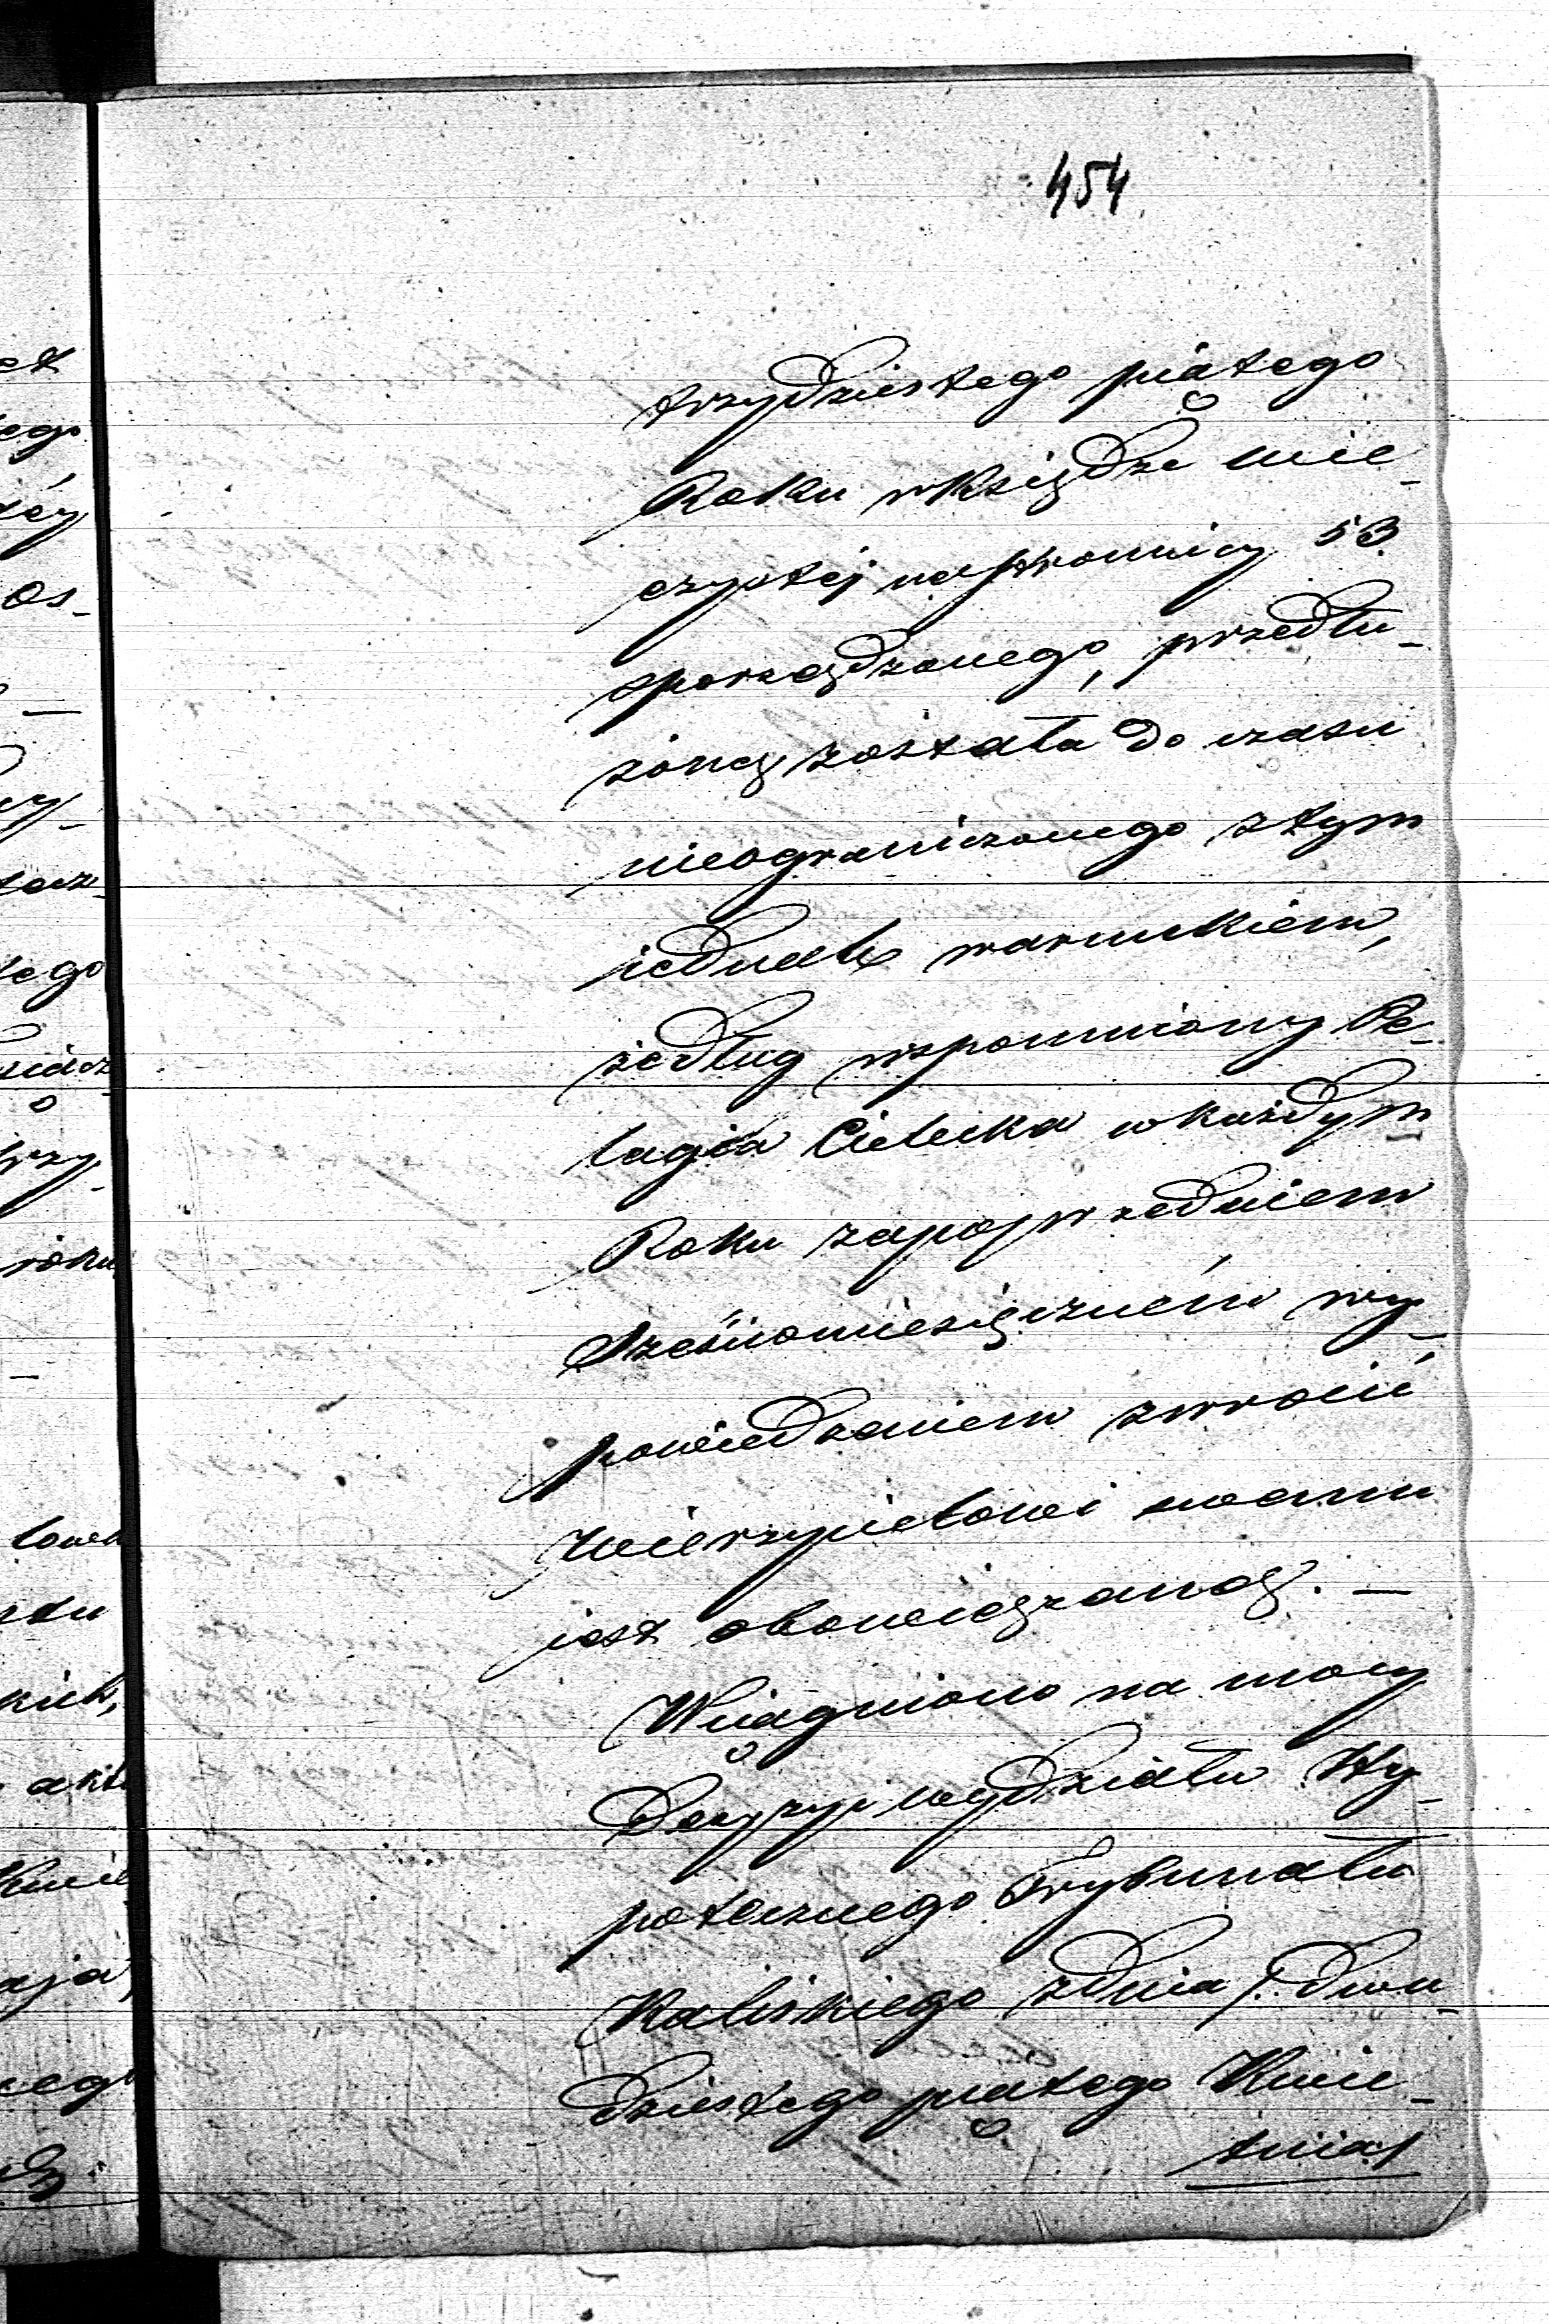 454
trzydziestego piątego
Roku wksiędze wie-
czystej na stronnicy 53
sporządzonego, przedłu-
żoną została do czasu
nieograniczonego ztym
jednak warunkiem,
że dług wspomniony Pe-
lagia Cielecka wkażdym
Roku zapoprzedniem
sześciomiesięczném wy-
powiedzeniem zwrócić
Wierzycielowi swemu
jest obowiązaną. —
Wciągniono na mocy
Decyzyi wydziału Hy-
potecznego Trybunału
Kaliskiego zdnia /: dwu-
dziestego piątego Kwie-
tnia/